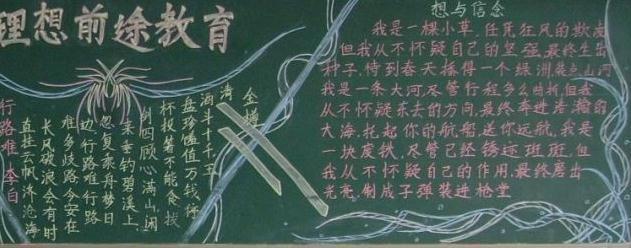 理想前途教育
金樽
清酒斗十千玉
盘珍馐值万钱停
杯投箸不能食拔
剑四顾心满山闲
来垂钓碧溪上
忽复乘舟梦日
边行路难行路
难多歧路今安在
长风破浪会有时
直挂云帆济沧海
行路难 李白
想与信念
我是一棵小草,任凭狂风的欺凌
但我从不怀疑自己的坚强,最终生出
种子,待到春天播得一个绿洲,装点山河
我是一条大河,尽管行程多么曲折,但我
从不怀疑东去的方向,最终奔进浩瀚的
大海,托起你的航船,送你远航,我是
一块废铁,尽管已经锈迹斑斑,但
我从不怀疑自己的作用,最终磨出
光亮,制成子弹装进枪堂